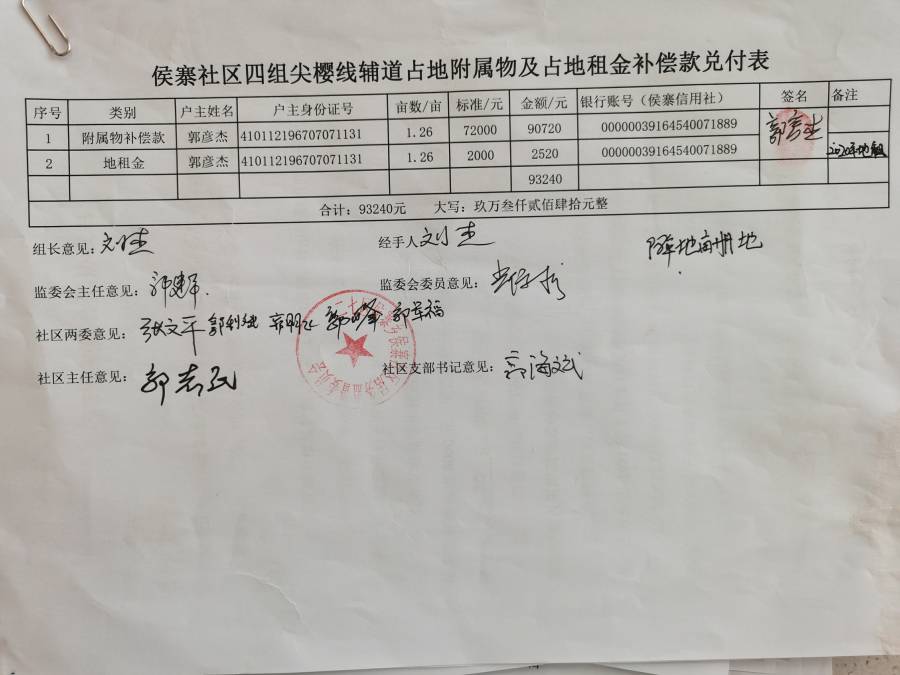 侯寨社区四组尖樱线辅道占地附属物及占地租金补偿款兑付表
序号 类别 户主姓名 户主身份证号 亩数/亩 标准/元 金额/元 银行账号（侯寨信用社） 签名 备注
1 附属物补偿款 郭彦杰 410112196707071131 1.26 72000 90720 00000039164540071889 郭彦杰
2 地租金 郭彦杰 410112196707071131 1.26 2000 2520 00000039164540071889 2020年地租
93240
合计：93240元 大写：玖万叁仟贰佰肆拾元整
组长意见： 经手人
监委会主任意见： 监委会委员意见：
社区两委意见：张文平
社区主任意见： 社区支部书记意见：